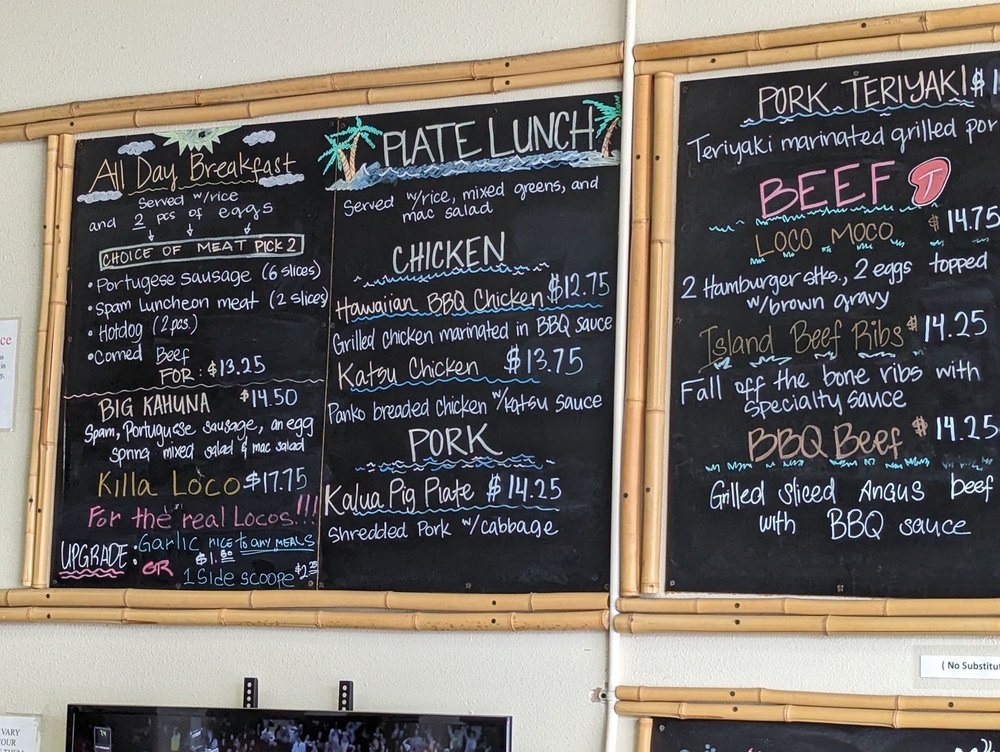 All Day Breakfast
Served w/rice
and 2 pcs of eggs
CHOICE OF MEAT PICK 2
• Portugese sausage (6 slices)
• Spam Luncheon meat (2 slices)
• Hotdog (2 pcs.)
• Corned Beef
FOR: $13.25
BIG KAHUNA $14.50
Spam, Portuguese sausage, an egg
spring mixed salad & mac salad
Killa Loco $17.75
For the real Locos!!!
UPGRADE: Garlic rice to any MEALS
$1.50
OR 1 Side scoope
PLATE LUNCH
Served w/rice, mixed greens, and
mac salad
CHICKEN
Hawaiian BBQ Chicken $12.75
Grilled chicken marinated in BBQ sauce
Katsu Chicken $13.75
Panko breaded Chicken w/katsu sauce
PORK
Kalua Pig Plate $14.25
Shredded Pork w/cabbage
PORK TERIYAKI $1
Teriyaki marinated grilled por
BEEF
LOCO MOCO $14.75
2 Hamburger stks., 2 eggs topped
w/brown gravy
Island Beef Ribs $14.25
Fall off the bone ribs with
specialty sauce
BBQ Beef $14.25
Grilled sliced Angus beef
with BBQ sauce
( No Substitut
VARY
YOUR